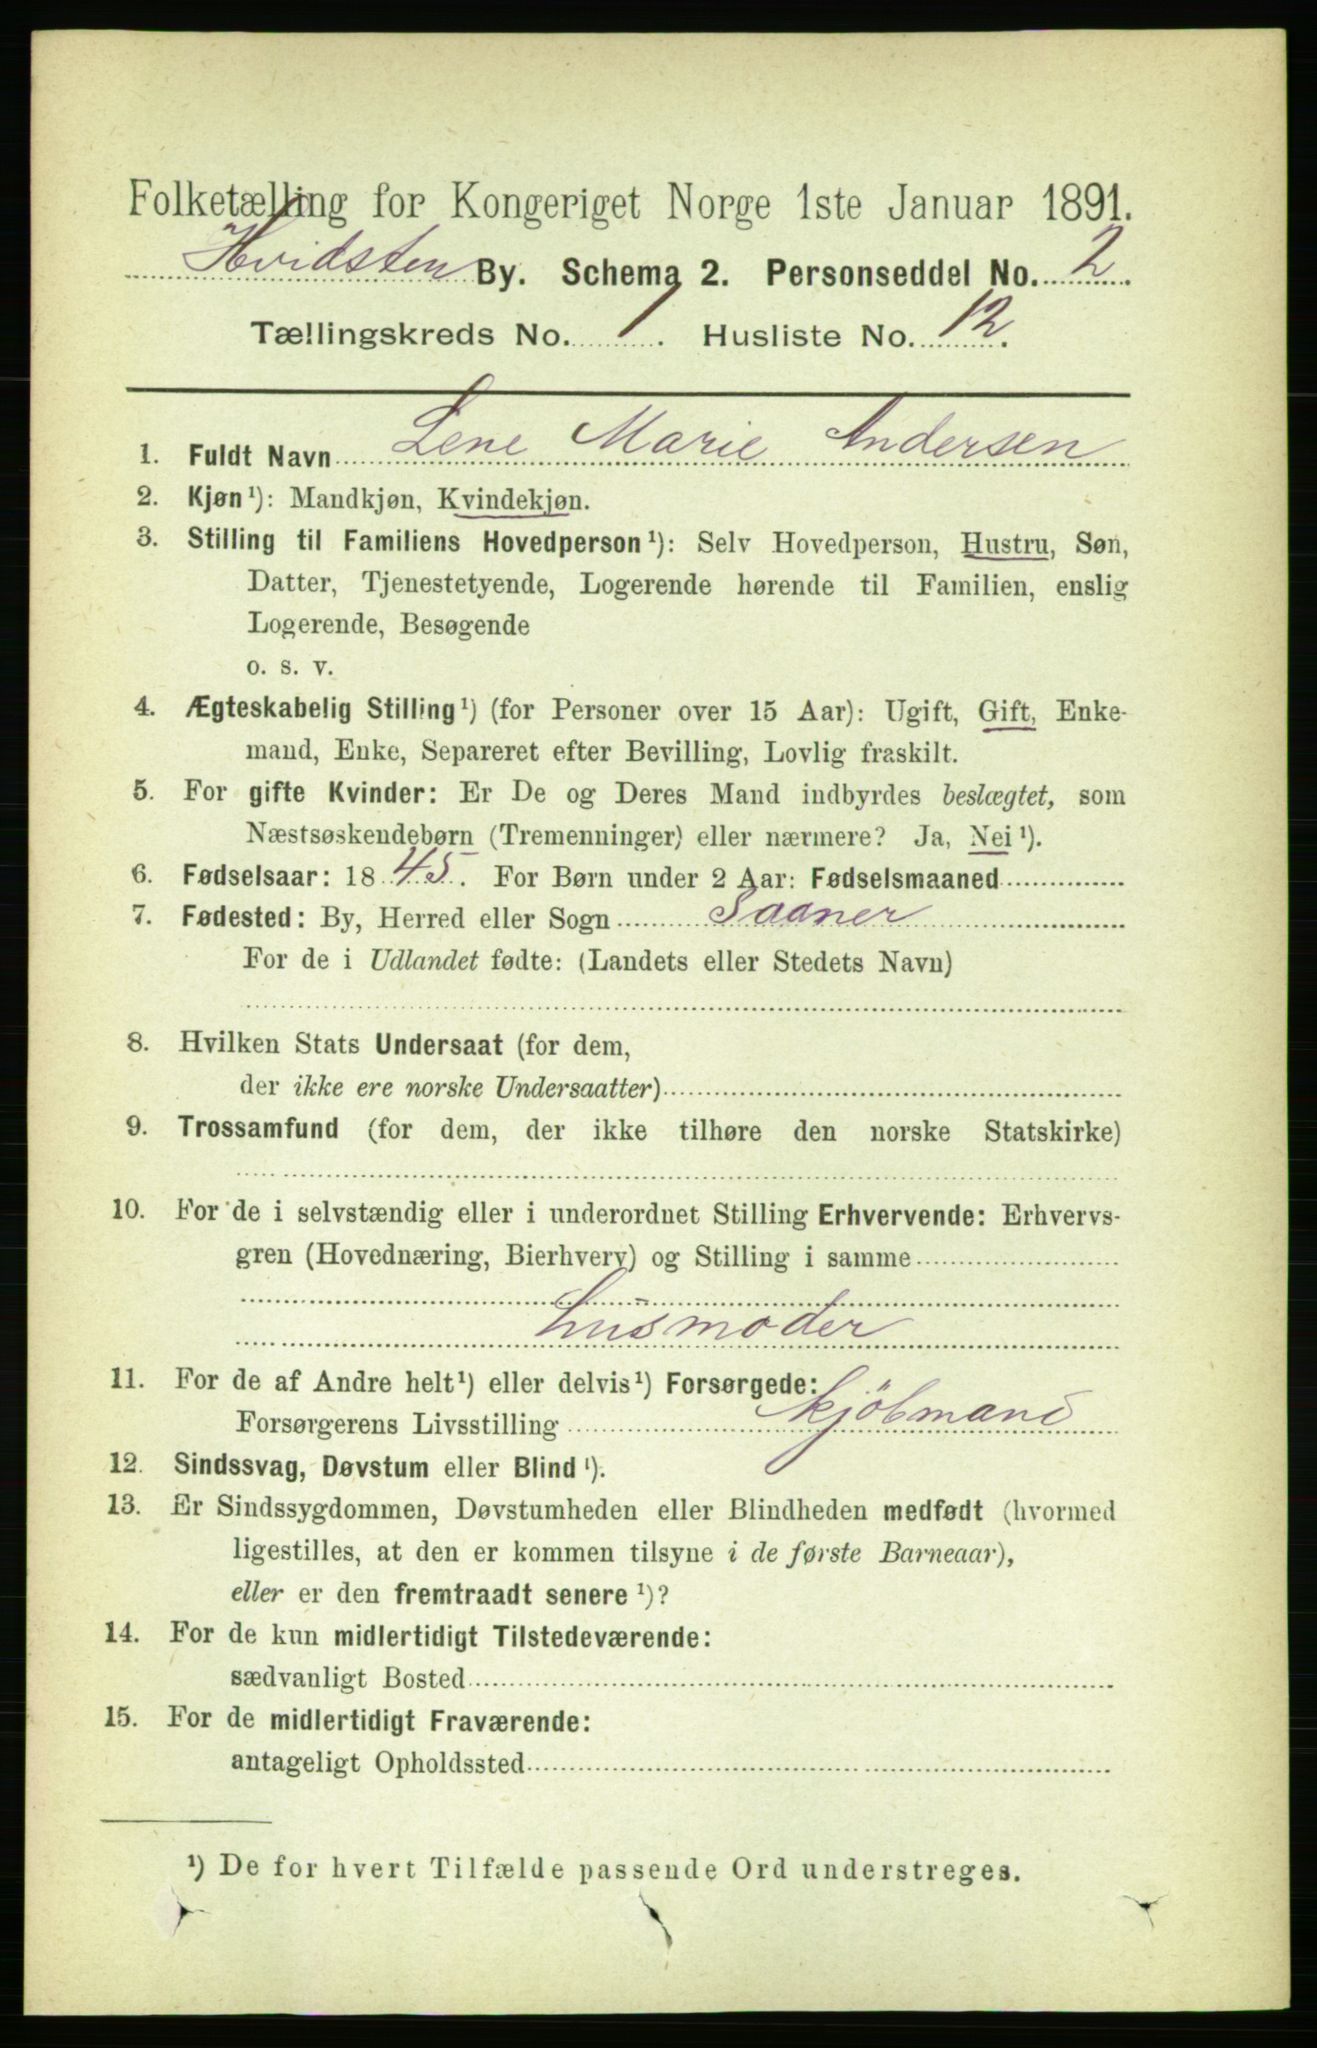 Folketælling for Kongeriget Norge 1ste Januar 1891.
Hvidsten By. Schema 2. Personseddel No. 2.
Tællingskreds No. 1. Husliste No. 12.
1. Fuldt Navn Lene Marie Andersen
2. Kjøn¹): Mandkjøn, Kvindekjøn.
3. Stilling til Familiens Hovedperson¹): Selv Hovedperson, Hustru, Søn,
Datter, Tjenestetyende, Logerende hørende til Familien, enslig
Logerende, Besøgende
o. s. v.
4. Ægteskabelig Stilling¹) (for Personer over 15 Aar): Ugift, Gift, Enke-
mand, Enke, Separeret efter Bevilling, Lovlig fraskilt.
5. For gifte Kvinder: Er De og Deres Mand indbyrdes beslægtet, som
Næstsøskendebørn (Tremenninger) eller nærmere? Ja, Nei¹).
6. Fødselsaar: 1845. For Børn under 2 Aar: Fødselsmaaned
7. Fødested: By, Herred eller Sogn Saaner
For de i Udlandet fødte: (Landets eller Stedets Navn)
8. Hvilken Stats Undersaat (for dem,
der ikke ere norske Undersaatter)
9. Trossamfund (for dem, der ikke tilhøre den norske Statskirke)
10. For de i selvstændig eller i underordnet Stilling Erhvervende: Erhvervs-
gren (Hovednæring, Bierhverv) og Stilling i samme
Husmoder
11. For de af Andre helt¹) eller delvis¹) Forsørgede:
Forsørgerens Livsstilling Kjöbmand
12. Sindssvag, Døvstum eller Blind¹).
13. Er Sindssygdommen, Døvstumheden eller Blindheden medfødt (hvormed
ligestilles, at den er kommen tilsyne i de første Barneaar),
eller er den fremtraadt senere¹)?
14. For de kun midlertidigt Tilstedeværende:
sædvanligt Bosted
15. For de midlertidigt Fraværende:
antageligt Opholdssted
¹) De for hvert Tilfælde passende Ord understreges.